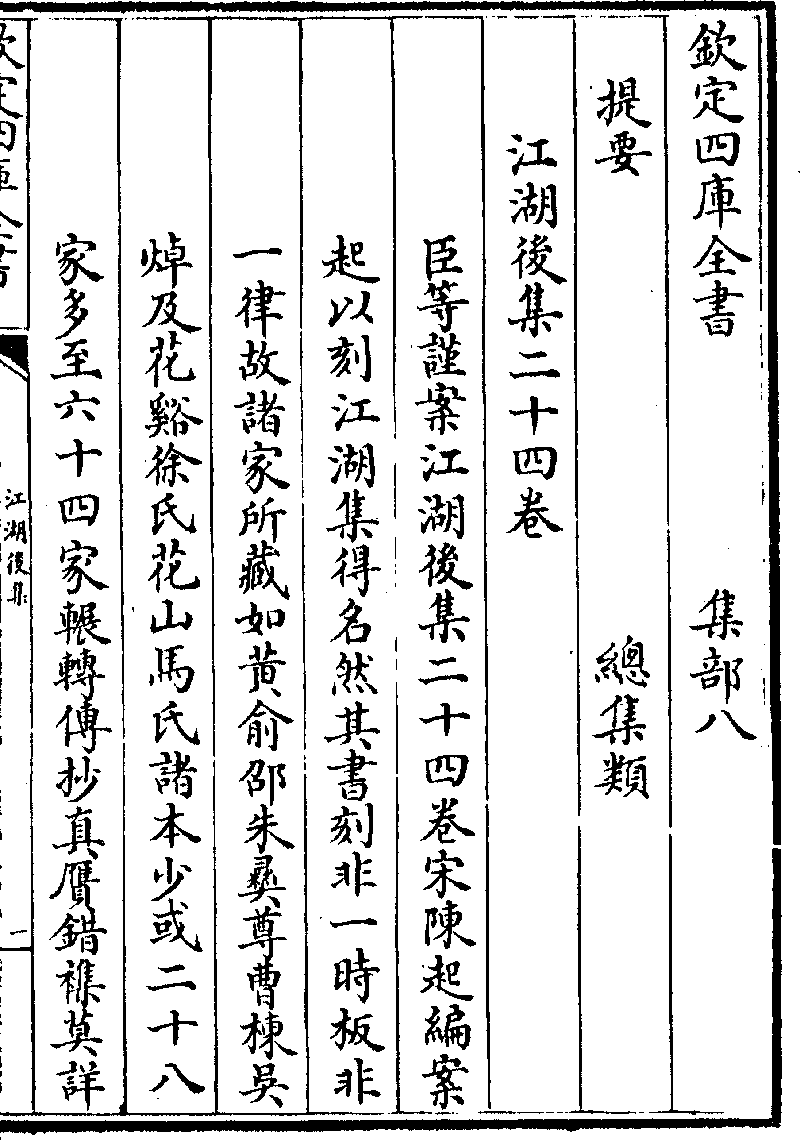 欽定四庫全書　集部八
提要　總集類
江湖後集二十四卷
臣等謹案江湖後集二十四卷宋陳起編案
起以刻江湖集得名然其書刻非一時板非
一律故諸家所藏如黄俞邵朱彞尊曹棟吳
焯及花谿徐氏花山馬氏諸本少或二十八
家多至六十四家輾轉傳抄真贋錯襍莫詳
欽定四庫全書
江湖後集
一